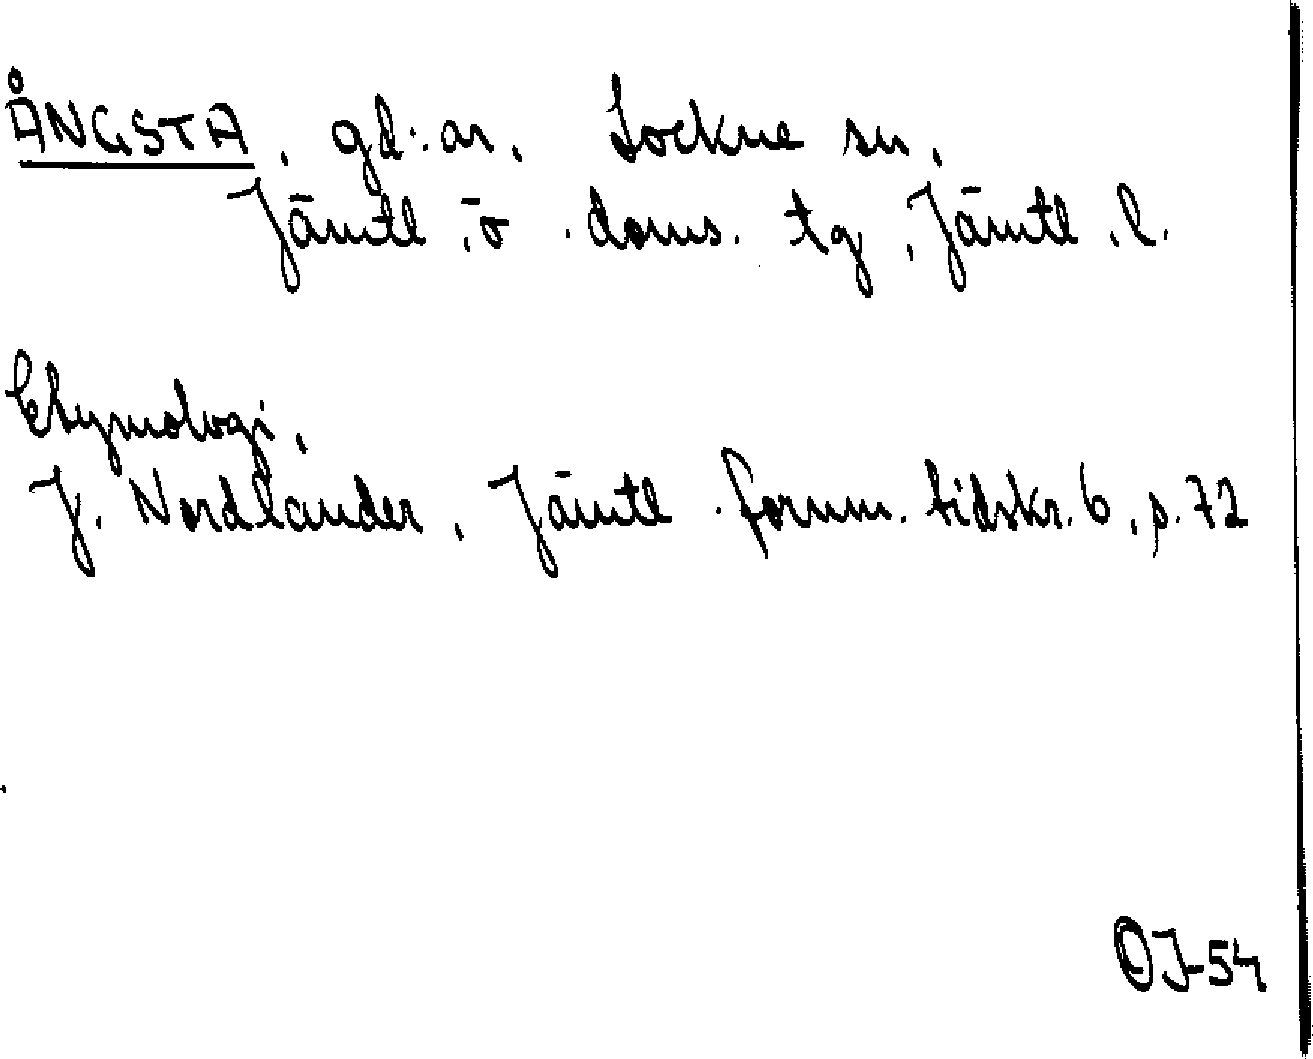 ÅNGSTA, gd:ar, Lockne sn,
Jämtl, ö. doms. tg, Jämtl. l.
Etymologi,
J. Nordlander, Jämtl. fornm. tidskr. 6, s. 72
OJ-54